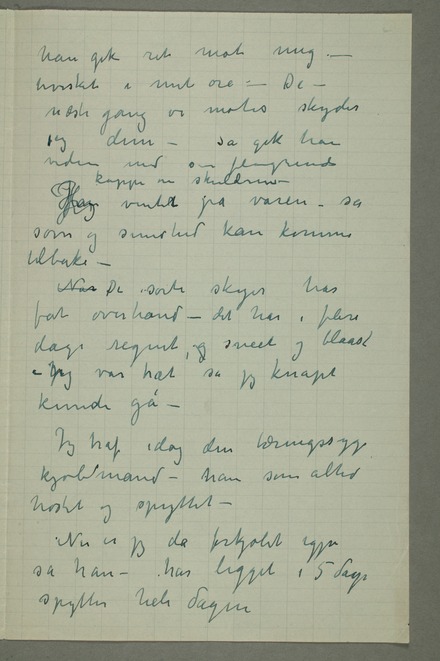 han gik ret mot mig. —
hvisket i mit øre — De —
næste gang vi møtes skyder
jeg dem — sa gik han
videre med sin
kappe om skuldrene —
Jeg venter pa våren — sa
som og sundhed kan komme
tilbake —
De sorte skyer har
fåt overhånd — det har i flere
dage regnet, og sneet og blaast
— Jeg var træt sa jeg knapt
kunde gå —
Jeg traf idag den tæringssyge
mand — han som altid
hostet og spyttet —
Nu er jeg da forkjølet igjen
sa han — har ligget i 5 dage
spytter hele dagen